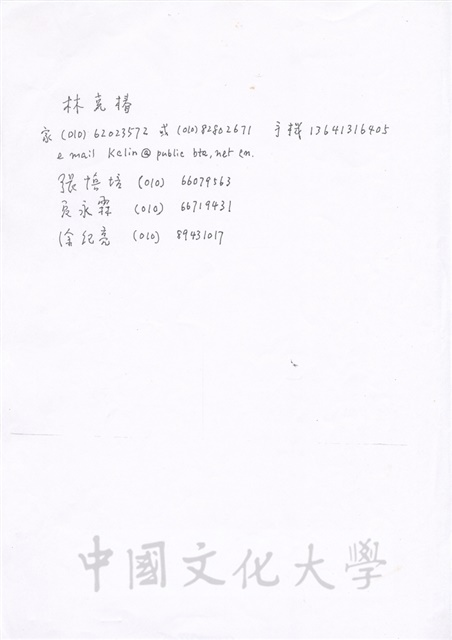 林克椿
家 (010) 62023572 或 (010) 82802671 手機 13641316405
e mail Kclin@public bta,net cn.
張培 (010) 66079563
永霖 (010) 66719431
徐紀亮 (010) 89431017
中國文化大學